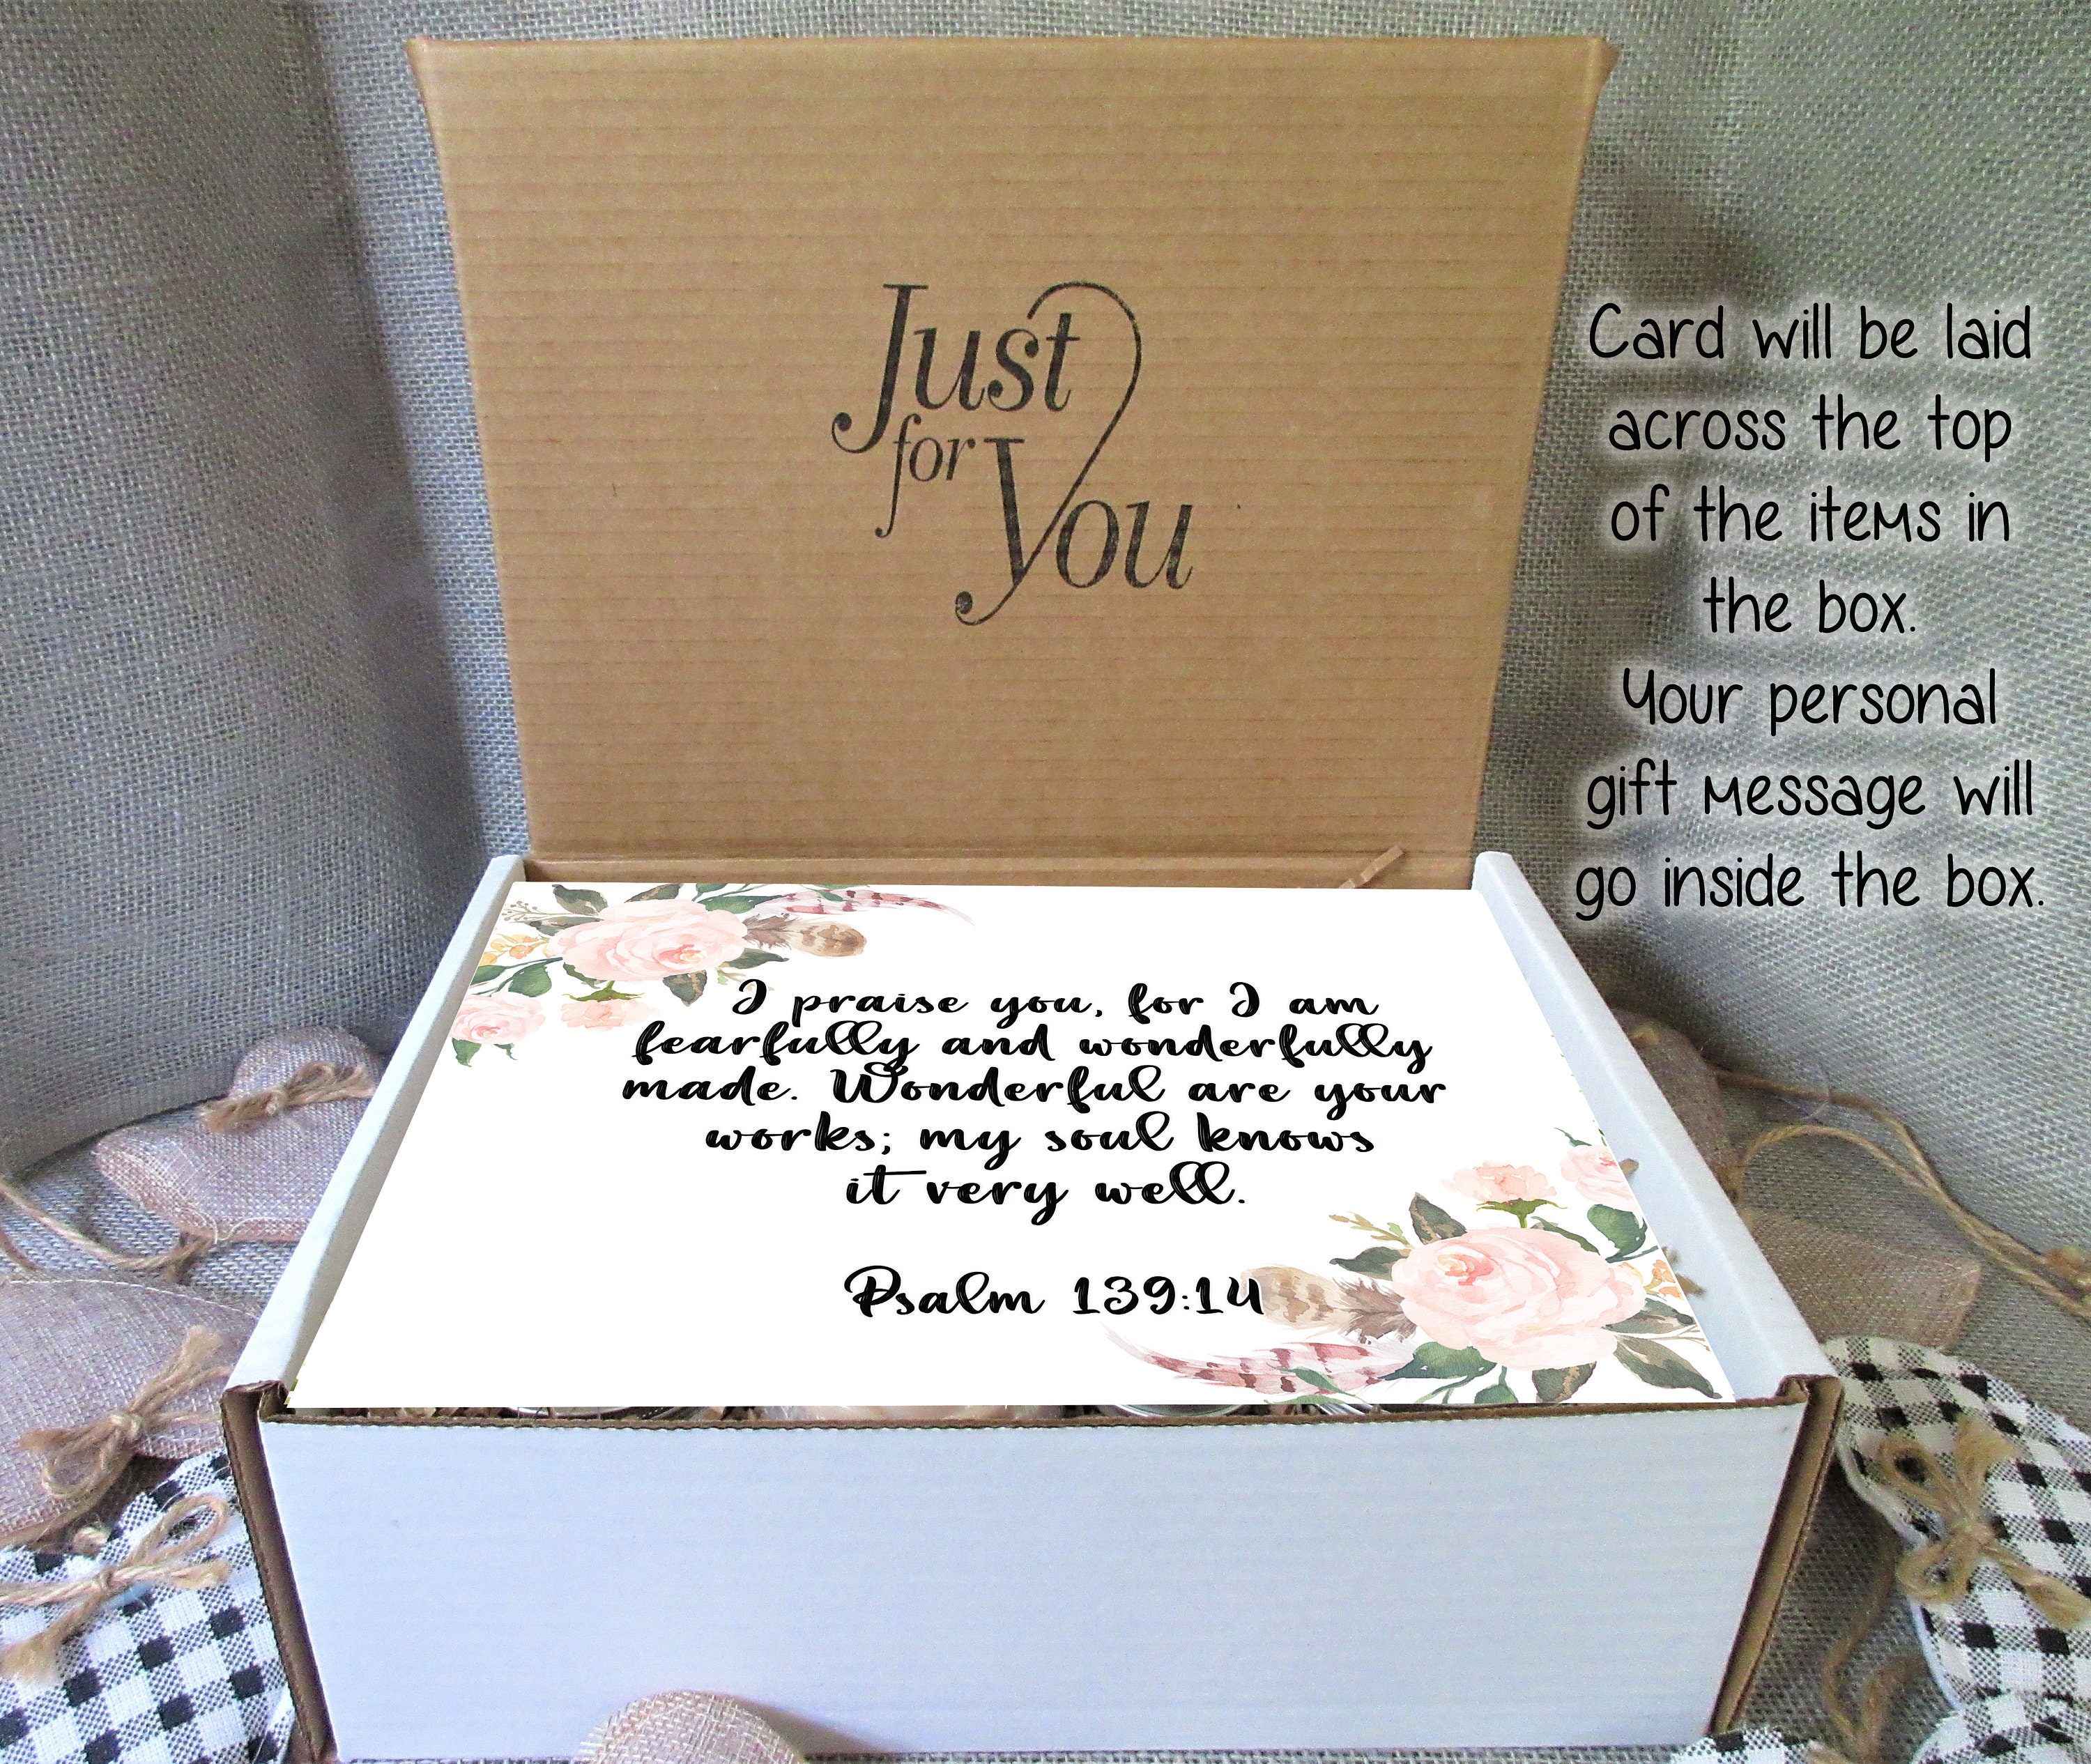 Just
for
You
Card will be laid
across the top
of the items in
the box.
Your personal
gift message will
go inside the box.
I praise you, for I am
fearfully and wonderfully
made. Wonderful are your
works; my soul knows
it very well.
Psalm 139:14